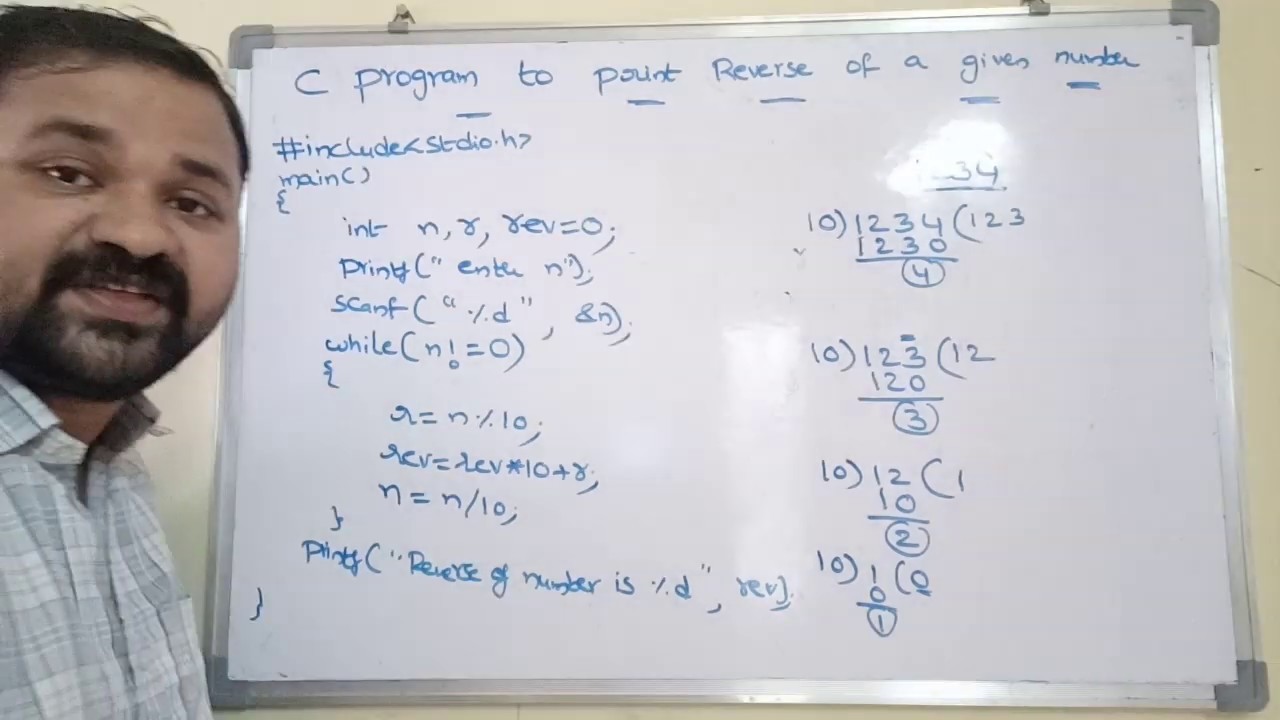 C program to print Reverse of a given number
#include<stdio.h>
main()
{
int n, r, rev=0;
printf(" enter n");
scanf("%d", &n);
while(n!=0)
{
r=n%10;
rev=rev*10+r;
n=n/10;
}
printf("Reverse of number is %d", rev);
}
34
10)1234(123
1230
4
10)123(12
120
3
10)12(1
10
2
10)1(0
0
1